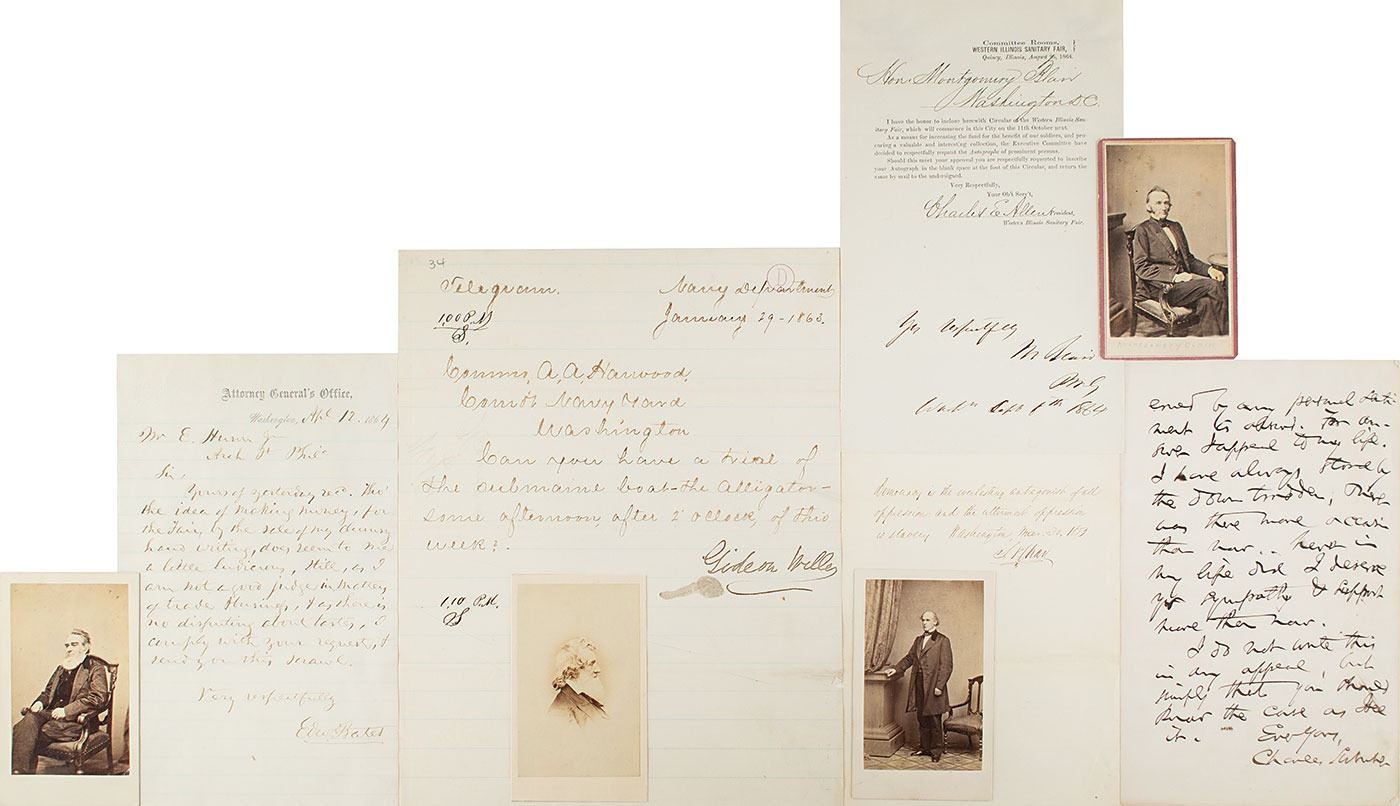 Attorney General's Office,
Washington, Apl 12. 1864
Mr E. Hunn Jr
Arch St Phila
Sir,
Yours of yesterday recd. Tho'
the idea of making money, for
the Fair, by the sale of my clumsy
hand writing, does seem to me
a little ludicrous, still, as I
am not a good judge in matters
of trade & business, & as there is
no disputing about tastes, I
comply with your request, &
send you this scrawl.
Very respectfully
Edw. Bates
34
Telegram. Navy Department
1,00 P.M January 29-1863.
S.
Commo, A, A, Harwood,
Comdt Navy Yard
Washington
Can you have a trial of
the submaine boat-the Alligator-
some afternoon, after 2 o'clock, of this
week?.
Gideon Welles
1,10 P.M.
S
D
Committee Rooms,
WESTERN ILLINOIS SANITARY FAIR,
Quincy, Illinois, August 1864.
Hon. Montgomery Blair
Washington D.C.
I have the honor to inclose herewith Circular of the Western Illinois San-
itary Fair, which will commence in this City on the 11th October next.
As a means for increasing the fund for the benefit of our soldiers, and pro-
curing a valuable and interesting collection, the Executive Committee have
decided to respectfully request the Autographs of prominent persons.
Should this meet your approval you are respectfully requested to inscribe
your Autograph in the blank space at the foot of this Circular, and return the
same by mail to the undersigned.
Very Respectfully,
Your Ob't Serv't,
Charles E Allen President,
Western Illinois Sanitary Fair.
Yrs respectfully
M Blair
P.M.G
Wash Sept 1864
MONTGOMERY BLAIR
Democracy is the unrelenting antagonist of all
oppression and the ultimate oppression
is slavery Washington, Mar
ened by any personal
ment is absurd. For an-
swer I appeal to my life.
I have always stood by
the down trodden; never
was there more occasion
than now. Never in
my life did I deserve
yr sympathy & support
more than now.
I do not write this
in any appeal, but
simply that you should
know the case as I see
it. Ever Yours,
Charles Sumner